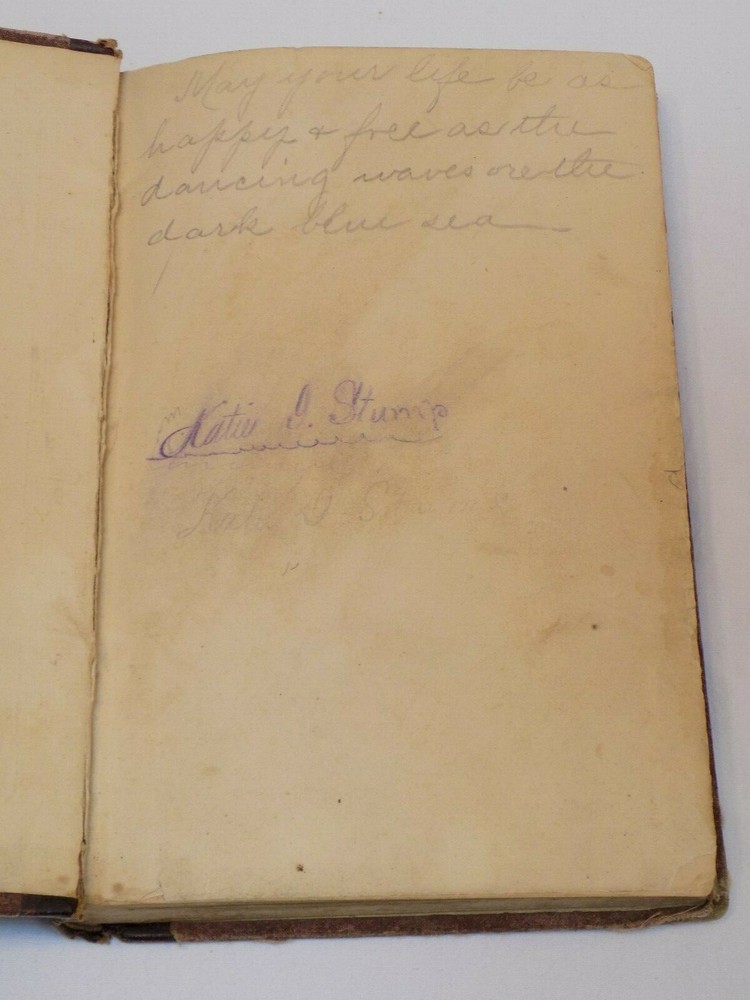 May your life be as
happy & free as the
dancing waves ore the
dark blue sea
Katie I. Stump
Katie I. Stump